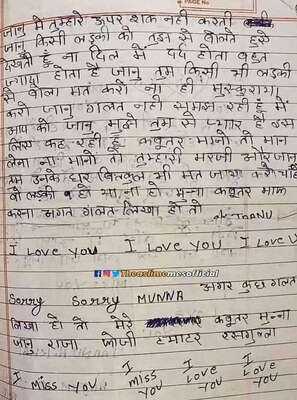 PAGE No
जानु मे तुम्हारे ऊपर शक नही करती
जानु किसी लडकी को तुझ से बोलते हुसे
देखती हूँ ना दिल में दर्द होता बहुत
ज्यादा होता है जानु तुम किसी भी लडकी
से बोला मत करो ना ही मुस्कुराया
करो जानु गलत नही समझ रही हूँ में
आप को जानु मुझे तुम से प्यार है इस
लिस कह रही हूँ कबूतर मानो तो मान
लेना ना मानो तो तुम्हारी मरजी और जानु
तुम उनके घर बिलकुल भी मत जाया करो चाहे
वो लडकी हो या ना हो मुन्ना कबूतर माफ
करना अगत गलत लिखा हो तो
I LOVE YOU I LOVE YOU I LOVE U
Theaslimemesofficial
Sorry Sorry MUNNA अगर कुछ गलत
लिखा हो तो मेरे कबूतर मुन्ना
जान राजा जोजी टमाटर रसगुल्ला
I MISS YOU I MISS YOU I LOVE YOU I LOVE YOU